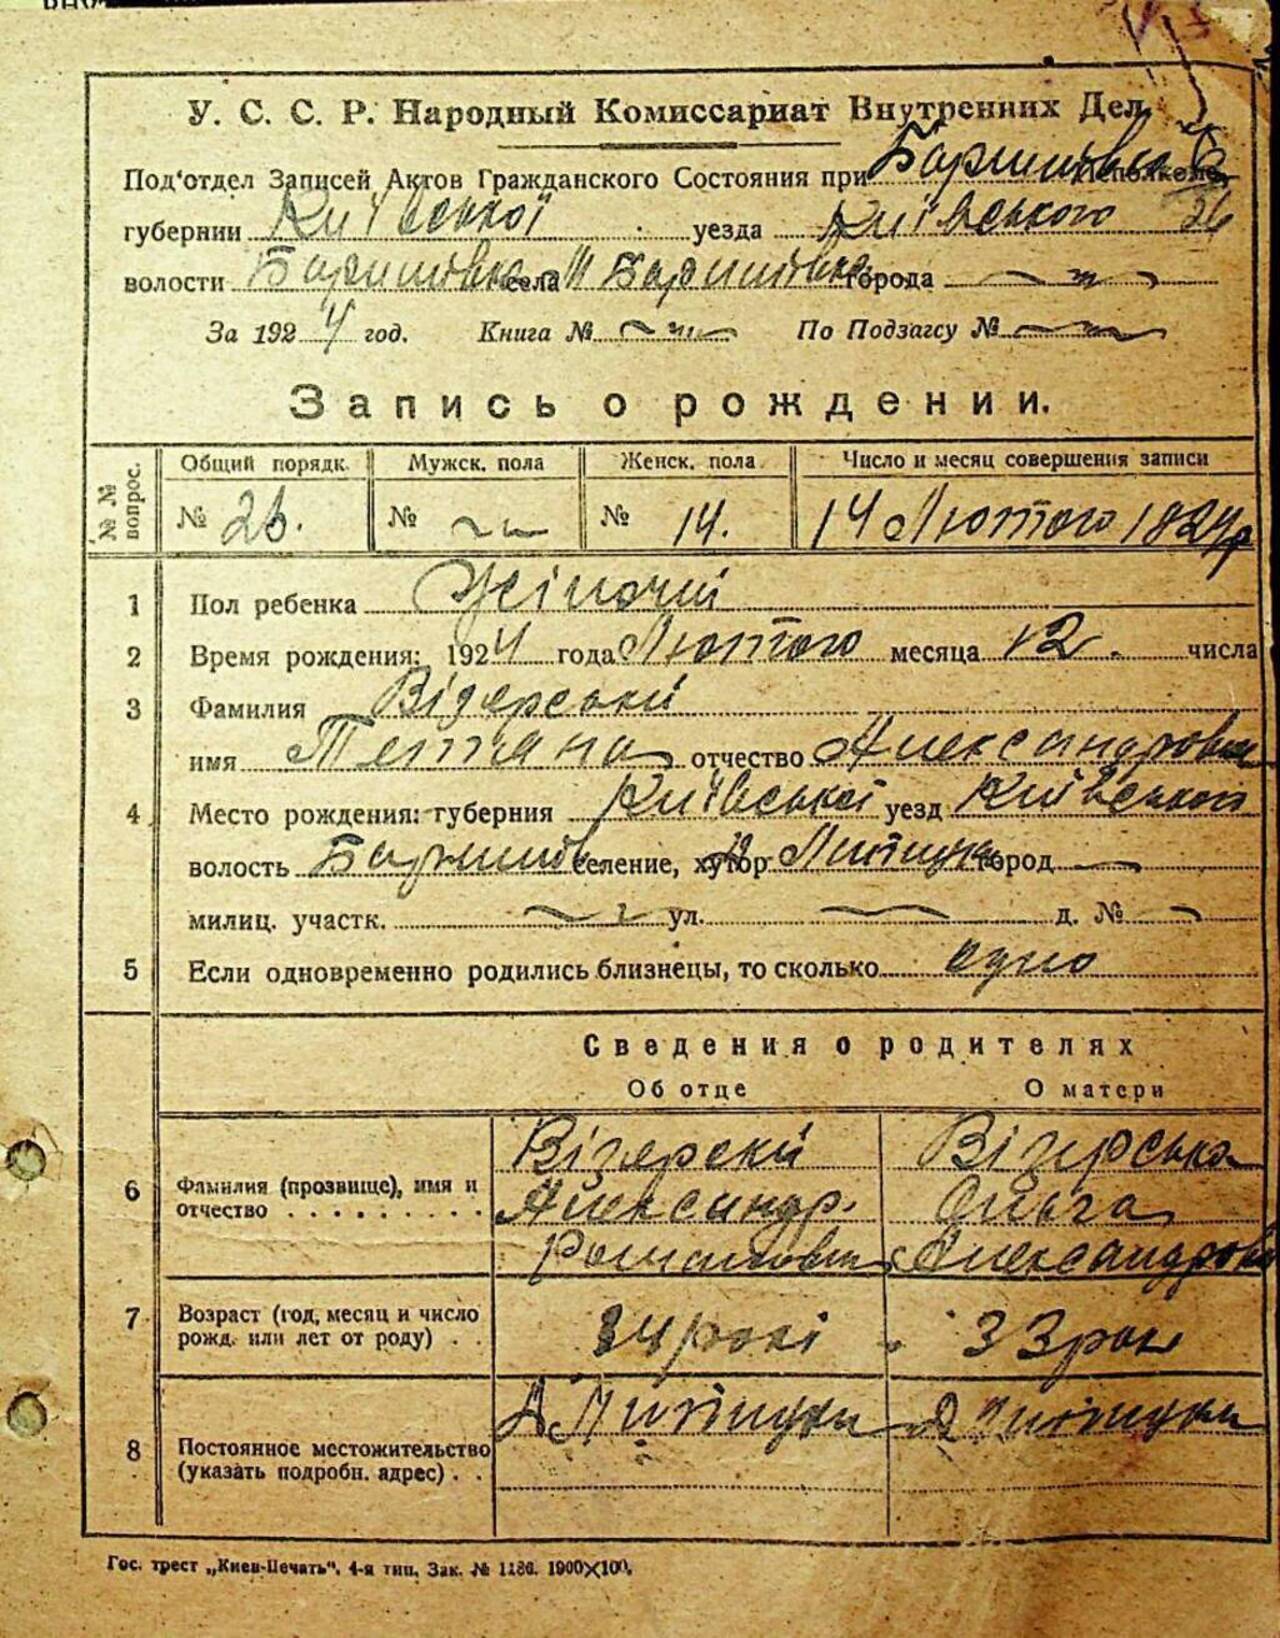 У. С. С. Р. Народный Комиссариат Внутренних Дел
Под'отдел Записей Актов Гражданского Состояния при Баришівка
губернии Київської уезда Київського
волости Баришівка села Баришівка города
За 1924 год. Книга № По Подзагсу №
Запись о рождении.
№ № вопрос. Общий порядк. Мужск. пола Женск. пола Число и месяц совершения записи
№ 26. № № 14. 14 Лютого 1824 р
1 Пол ребенка Жіночий
2 Время рождения: 1924 года Лютого месяца 12. числа
3 Фамилия
имя Тетяна отчество Александровна
4 Место рождения: губерния Київської уезд Київського
волость Баришів селение, хутор город
милиц. участк. ул. д. №
5 Если одновременно родились близнецы, то сколько одно
Сведения о родителях
Об отце О матери
6 Фамилия (прозвище), имя и отчество
Александр. Ольга
Романович Александровна
7 Возраст (год, месяц и число рожд. или лет от роду) 34 роки 33 роки
8 Постоянное местожительство (указать подробн. адрес)
Гос. трест „Киев-Печать“. 4-я тип. Зак. № 1186. 1900×100.